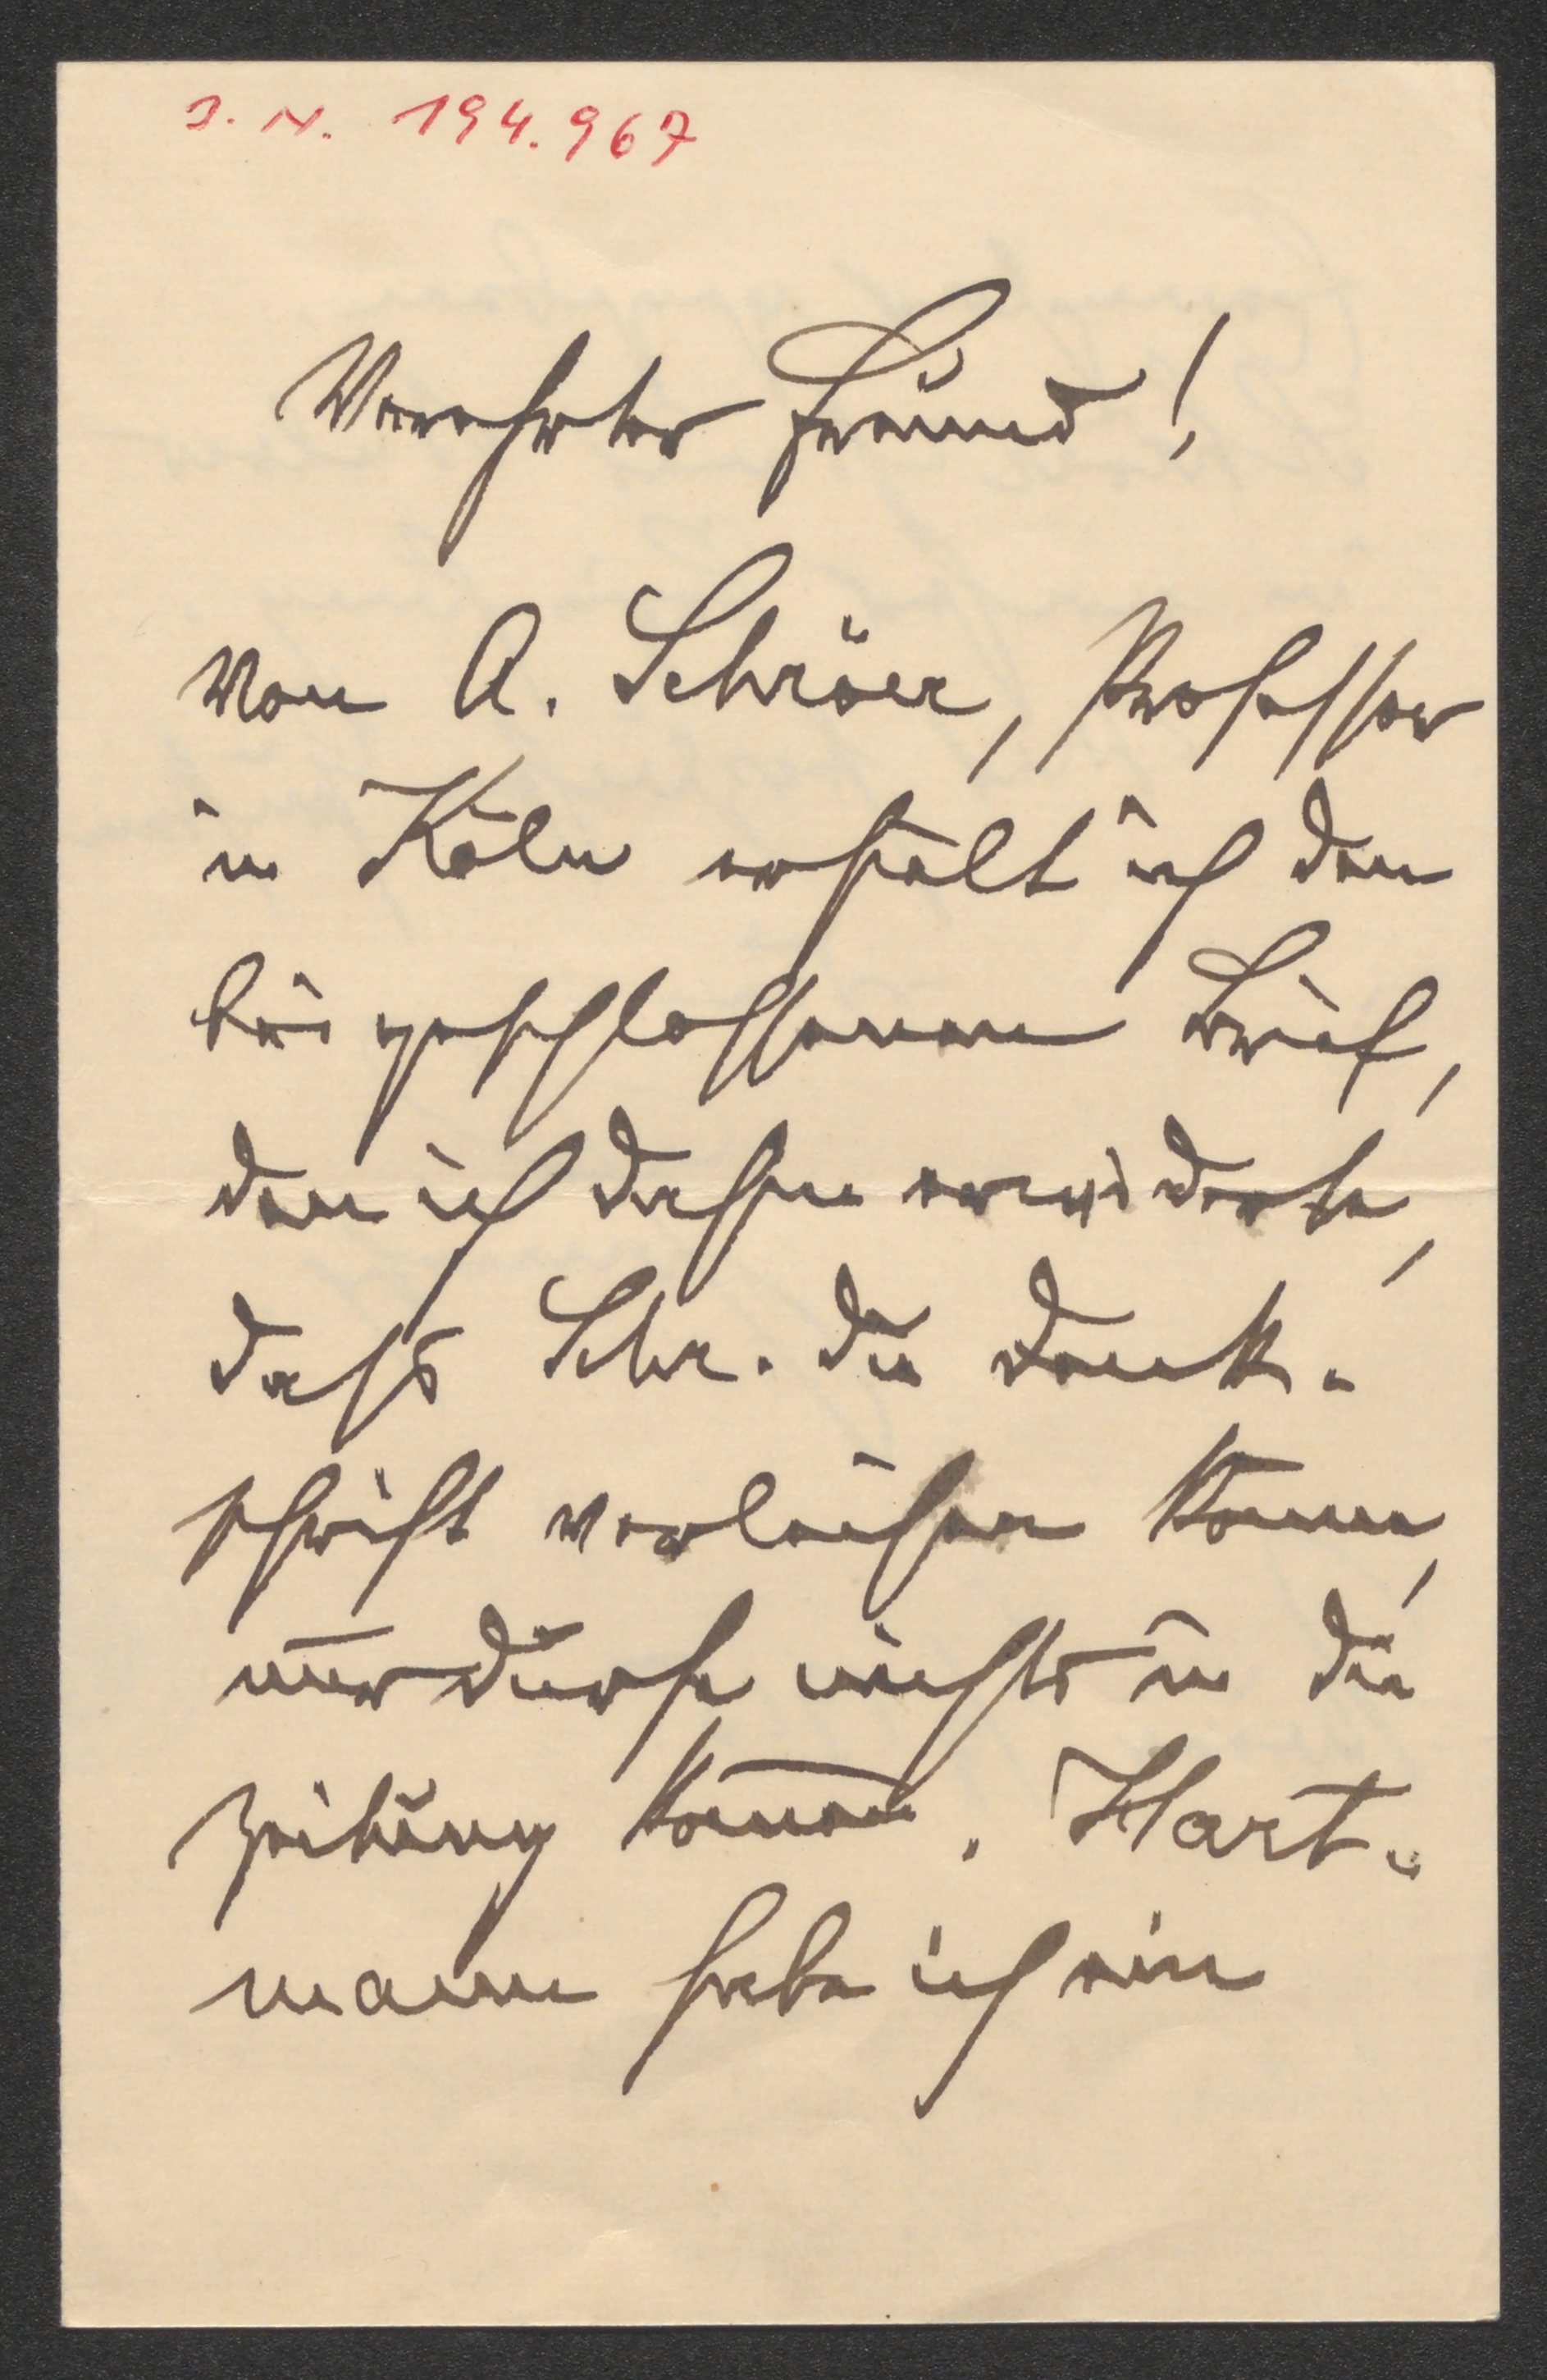 J. N. 194.967
Verehrter Freund!
Von A. Schröer, Professor
in Köln erhielt ich den
beigeschlossenen Brief,
den ich dahin erwiderte,
dass Schr. die Denk-
schrift verleihen kann,
nur dürfe nichts in die
Zeitung kommen. Hart-
mann habe ich ein